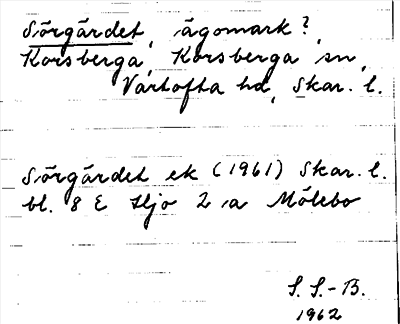 Sörgärdet, ägomark?
Korsberga, Korsberga sn,
Vartofta hd, Skar. l.
Sörgärdet ek (1961) Skar. l.
bl. 8 E Hjo 2 a Mölebo
S. S.-B.
1962